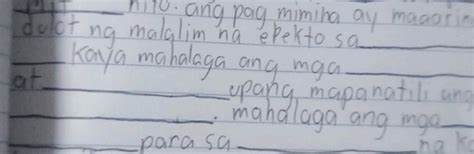 nito. ang pag mimina ay maaarin
dulot ng malalim na epekto sa
kaya mahalaga ang mga
at upang mapanatili ang
. mahalaga ang mga
para sa na k